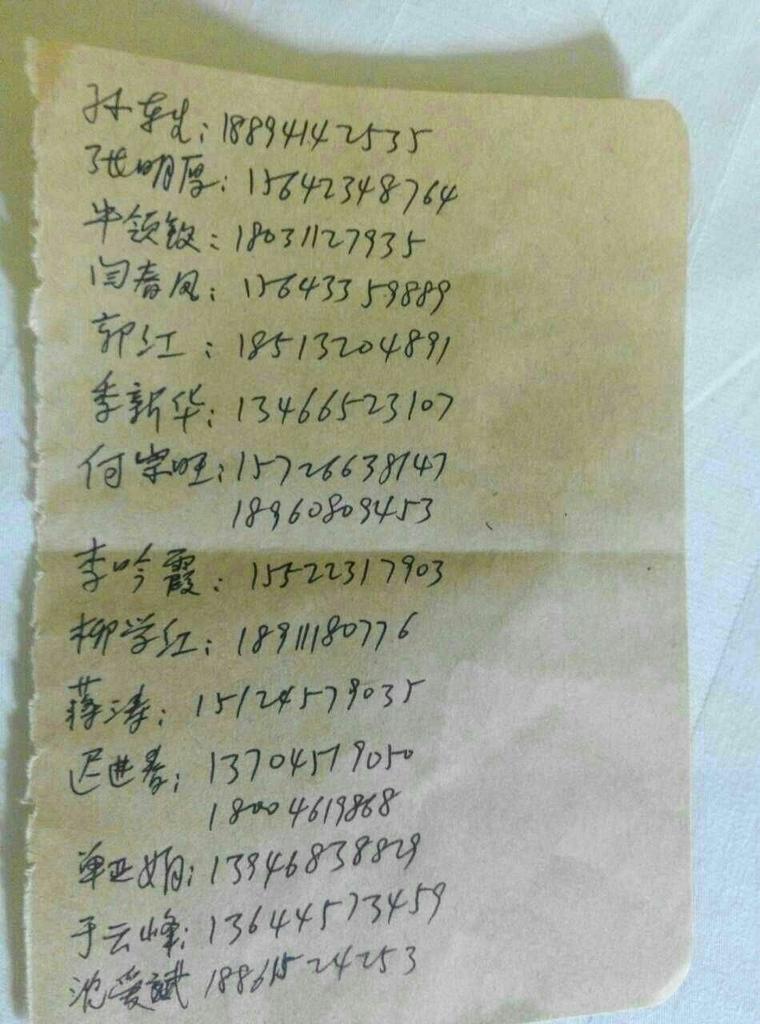 孙东生:18894142535
张明厚:15642348764
牛领敏:18031127935
闫春凤:15643359889
郭红:18513204891
季新华:13466523107
付崇旺:15726638147
18960809453
李吟霞:15522317903
柳学红:18911180776
蒋涛:15124579035
迟进春:13704579050
18004619868
单亚娟:13946838829
于云峰:13644573459
沈爱斌 18861524253